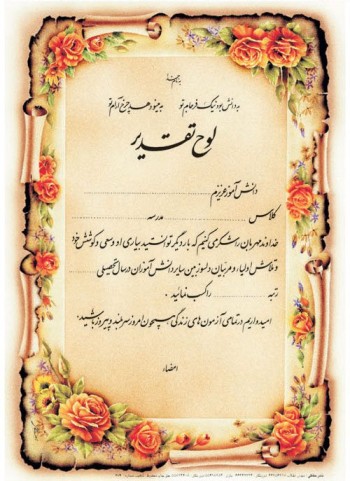 به دانش بود نیک فرجام تو    به مینو دهد چرخ آرام تو
لوح تقدیر
دانش آموز عزیزم
کلاس                مدرسه
خداوند مهربان را شکر می کنیم که بار دیگر توانستید بیاری او و سعی و کوشش خود
و تلاش اولیاء و مربیان دلسوز بین سایر دانش آموزان در سال تحصیلی
رتبه                را کسب نمائید .
امیدواریم در تمامی آزمون های زندگی همچون امروز سربلند و پیروز باشید.
امضاء